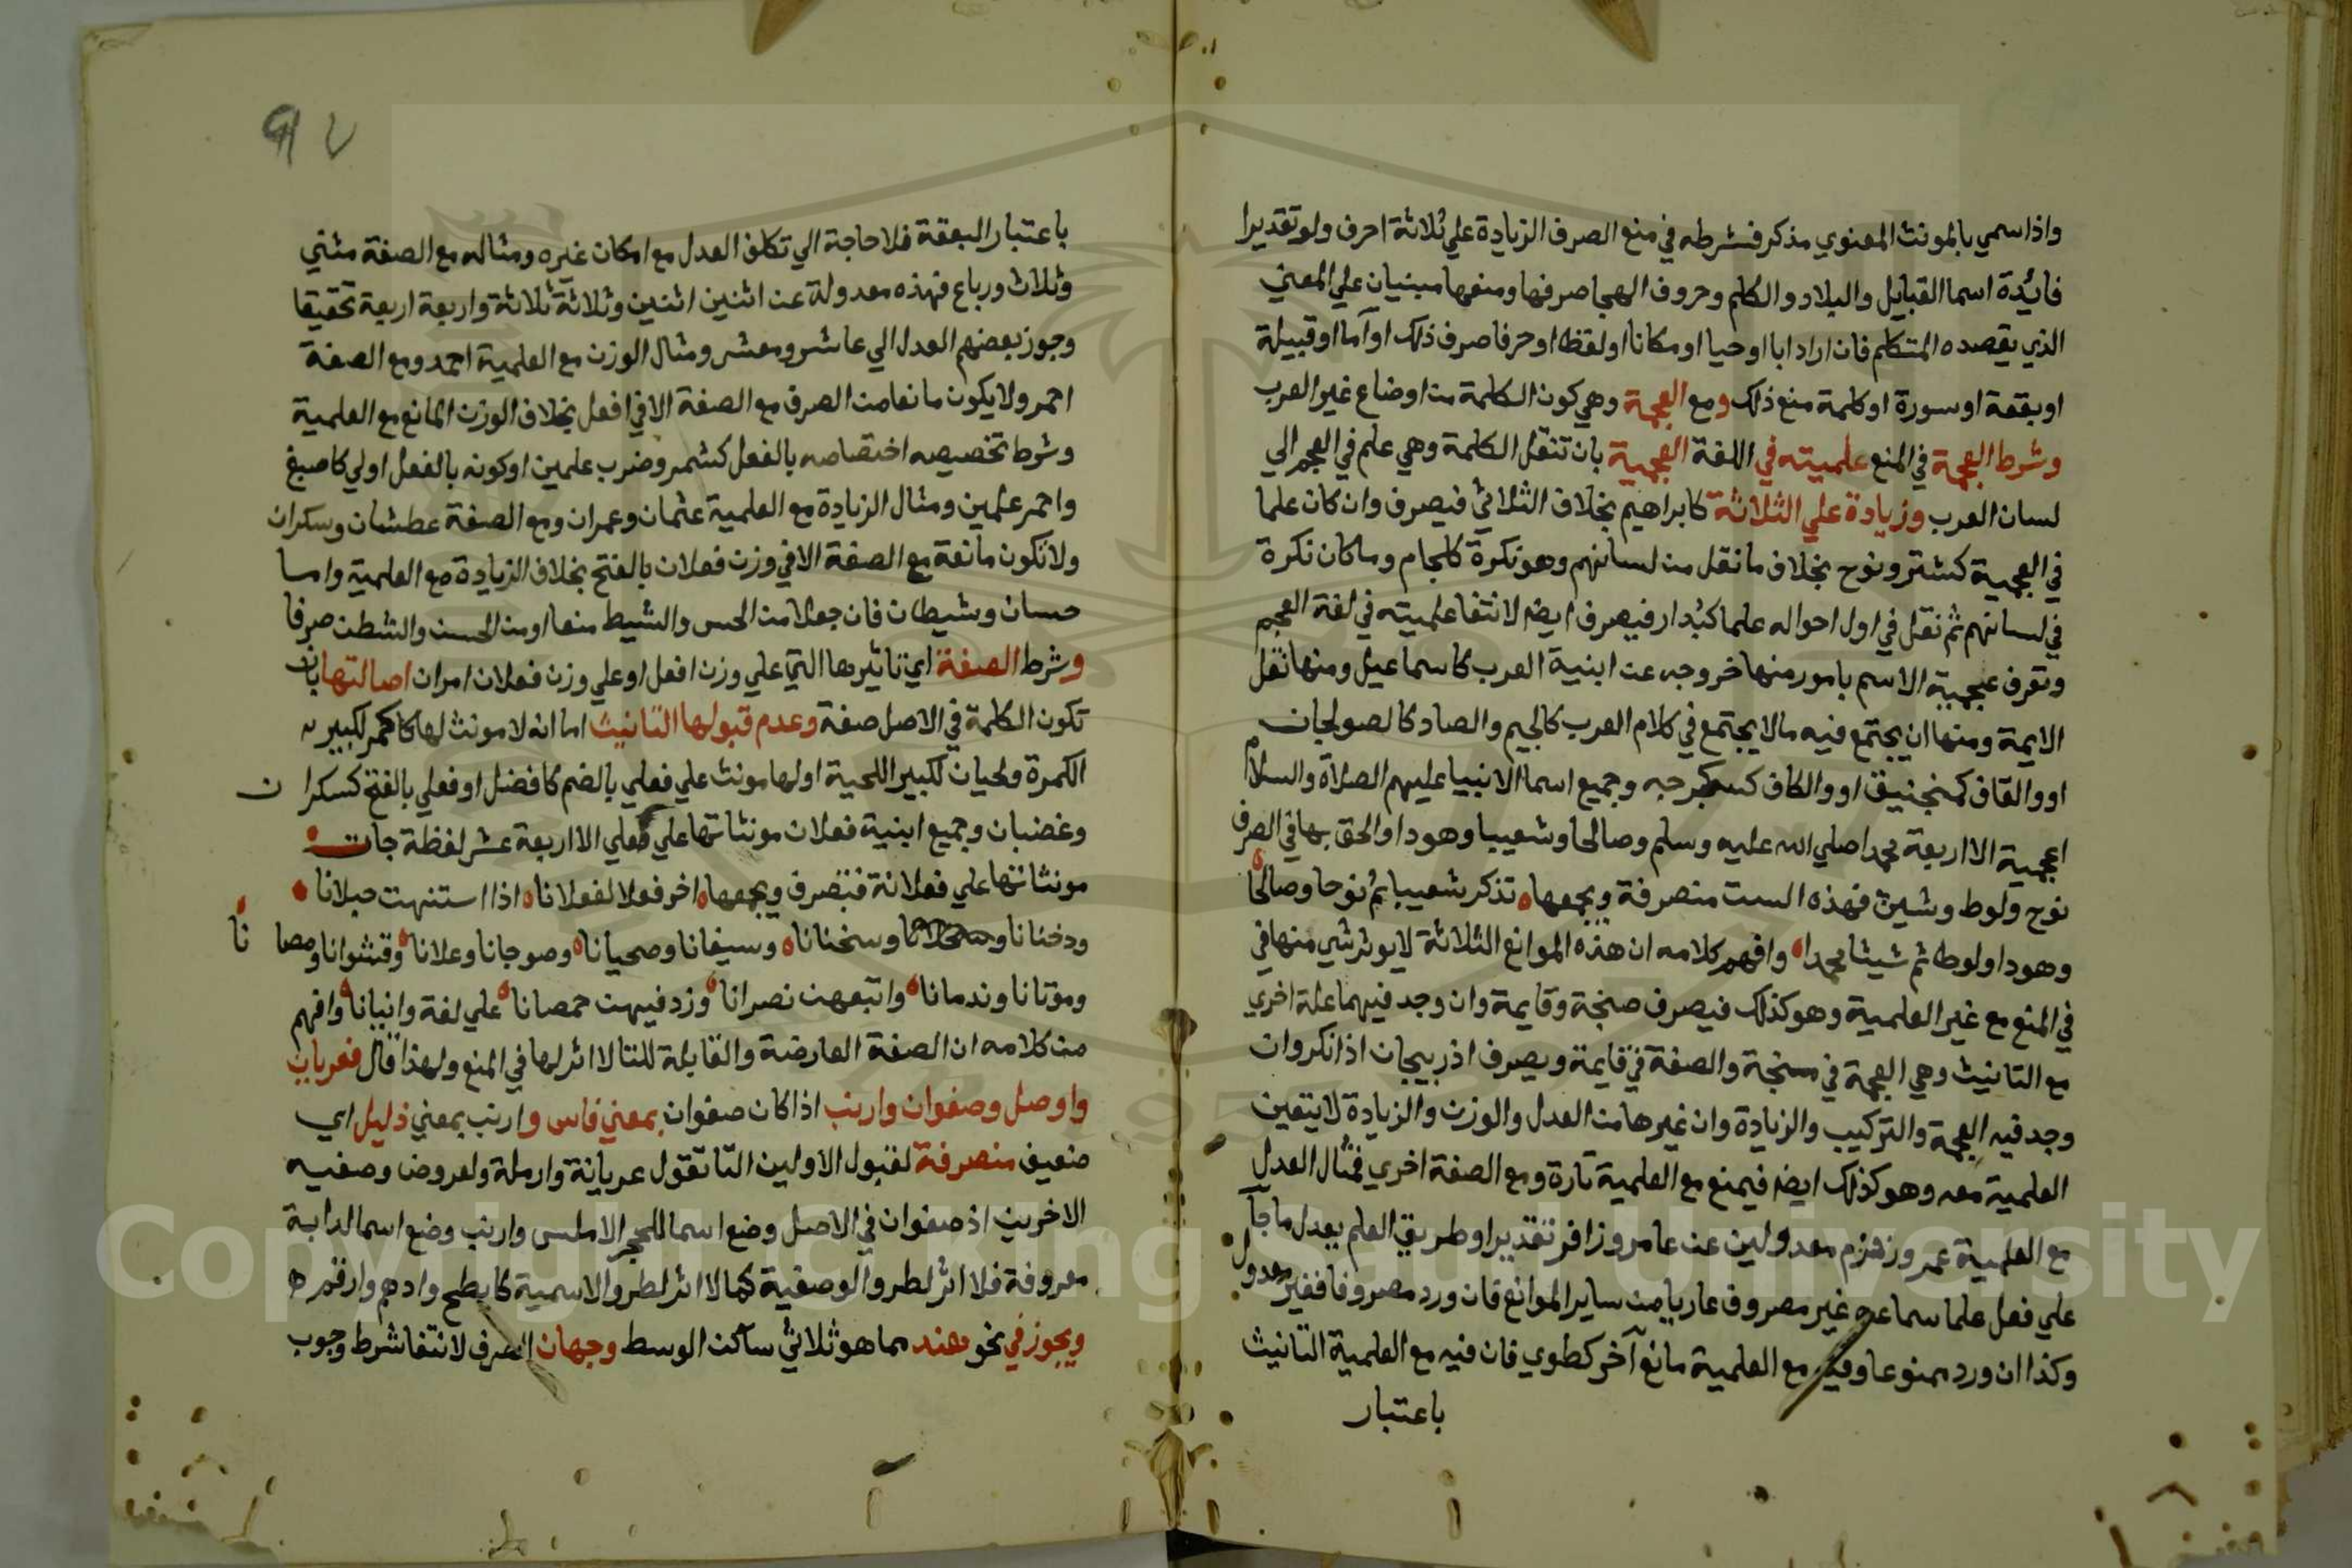 واذا سمي بالمونث المعنوي مذكر فشرطه في منع الصرف الزيادة علي ثلاثة احرف ولو تقديرا
فايدة اسما القبايل والبلاد والكلم وحروف الهجا صرفها ومنعها مبنيان علي المعني
الذي يقصده المتكلم فان اراد ابا او حيا او مكانا او لفظا او حرفا صرف ذلك او اما او قبيلة
او بقعة او سورة او كلمة منع ذلك ومع العجمة وهي كون الكلمة من اوضاع غير العرب
وشرط العجمة في المنع علميته في اللغة العجمية بان تنقل الكلمة وهي علم في العجم الي
لسان العرب وزيادة علي الثلاثة كابراهيم بخلاف الثلاثي فيصرف وان كان علما
في العجمية كشتر ونوح بخلاف ما نقل من لسانهم وهو نكرة كلجام وما كان نكرة
في لسانهم ثم نقل في اول احواله علما كبندار فيصرف ايضا لانتفا علميته في لغة العجم
وتعرف عجمية الاسم بامور منها خروجه عن ابنية العرب كاسماعيل ومنها نقل
الايمة ومنها ان يجتمع فيه مالا يجتمع في كلام العرب كالجيم والصاد كالصولجان
او والقاف كمنجنيق او والكاف وجميع اسما الانبيا عليهم الصلاة والسلام
اعجمية الا اربعة محمدا صلي الله عليه وسلم وصالحا وشعيبا وهودا والحق بها في الصرف
نوح ولوط وشيث فهذه الست منصرفة ويجمعها تذكر شعيبا ثم نوحا وصالحا
وهودا ولوطا ثم شيثا محمدا وافهم كلامه ان هذه الموانع الثلاثة لا يوثر شي منها في
في المنع مع غير العلمية وهو كذلك فيصرف صنجة وقايمة وان وجد فيهما علة اخري
مع التانيث وهي العجمة في صنجة والصفة في قايمة ويصرف اذربيجان اذا نكر وان
وجد فيه العجمة والتركيب والزيادة وان غيرها من العدل والوزن والزيادة لا يتعين
العلمية معه وهو كذلك ايضا فيمنع مع العلمية تارة ومع الصفة اخري فمثال العدل
مع العلمية عمر وزفر معدولين عن عامر وزافر تقديرا وطريق العلم بعدل ما جآ
علي فعل علما سماعه غير مصروف عاريا من ساير الموانع فان ورد مصروفا فغير معدول
وكذا ان ورد ممنوعا وفيه مع العلمية مانع آخر كطوي فان فيه مع العلمية التانيث
باعتبار
٩٧
باعتبار البقعة فلا حاجة الي تكلف العدل مع امكان غيره ومثاله مع الصفة مثني
وثلاث ورباع فهذه معدولة عن اثنين اثنين وثلاثة ثلاثة واربعة اربعة تحقيقا
وجوز بعضهم العدل الي عاشر ومعشر ومثال الوزن مع العلمية احمد ومع الصفة
احمر ولا يكون مانعا من الصرف مع الصفة الا في افعل بخلاف الوزن المانع مع العلمية
وشرط تخصيصه اختصاصه بالفعل كشمر وضرب علمين او كونه بالفعل اولي كاصبغ
واحمر علمين ومثال الزيادة مع العلمية عثمان وعمران ومع الصفة عطشان وسكران
ولا تكون مانعة مع الصفة الا في وزن فعلان بالفتح بخلاف الزيادة مع العلمية واما
حسان وشيطان فان جعلا من الحس والشيط منعا او من الحسن والشطن صرفا
وشرط الصفة اي تاثيرها التي علي وزن افعل او علي وزن فعلان امران اصالتها بان
تكون الكلمة في الاصل صفة وعدم قبولها التانيث اما انه لا مونث لها كاكمر لكبير
الكمرة ولحيان لكبير اللحية او لها مونث علي فعلي بالضم كافضل او فعلي بالفتح كسكران
وغضبان وجميع ابنية فعلان مونثاتها علي فعلي الا اربعة عشر لفظة جات
مونثاتها علي فعلانة فتصرف ويجمعها اخر فعلا لفعلانا اذا استنهت حبلانا
ودخنانا وسخنانا وسيفانا وصحيانا وصوجانا وعلانا وقشوانا ومصانا
وموتانا وندمانا واتبعهن نصرانا وزد فيهن خمصانا علي لغة واليانا وافهم
من كلامه ان الصفة العارضة والقابلة للتا لا اثر لها في المنع ولهذا قال فعريان
وارمل وصفوان وارنب اذا كان صفوان بمعني قاس وارنب بمعني ذليل اي
ضعيف منصرفة لقبول الاولين التا تقول عريانة وارملة ولعروض وصفيه
الاخرين اذ صفوان في الاصل وضع اسما للحجر الاملس وارنب وضع اسما لدابة
معروفة فلا اثر لطرو الوصفية كما لا اثر لطرو الاسمية كابطح وادهم وارقم
ويجوز في نحو هند مما هو ثلاثي ساكن الوسط وجهان الصرف لانتفا شرط وجوب
Copyright © King Saud University